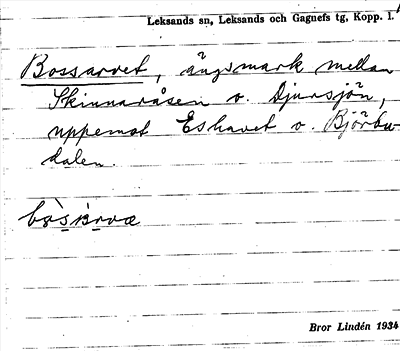 Leksands sn, Leksands och Gagnefs tg, Kopp. l.
Bossarvet, ängsmark mellan
Skinnaråsen o. Djursjön,
uppemot Eshavet o. Björbo
dalen.
Bror Lindén 1934